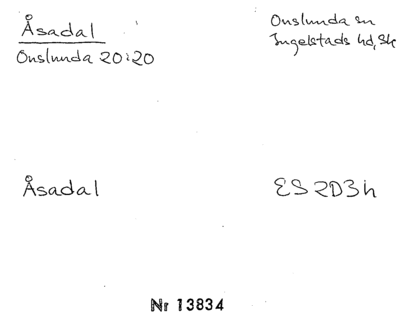 Åsadal
Onslunda 20:20
Onslunda sn
Ingelstads hd, Sk
Åsadal
ES 2D3h
Nr 13834